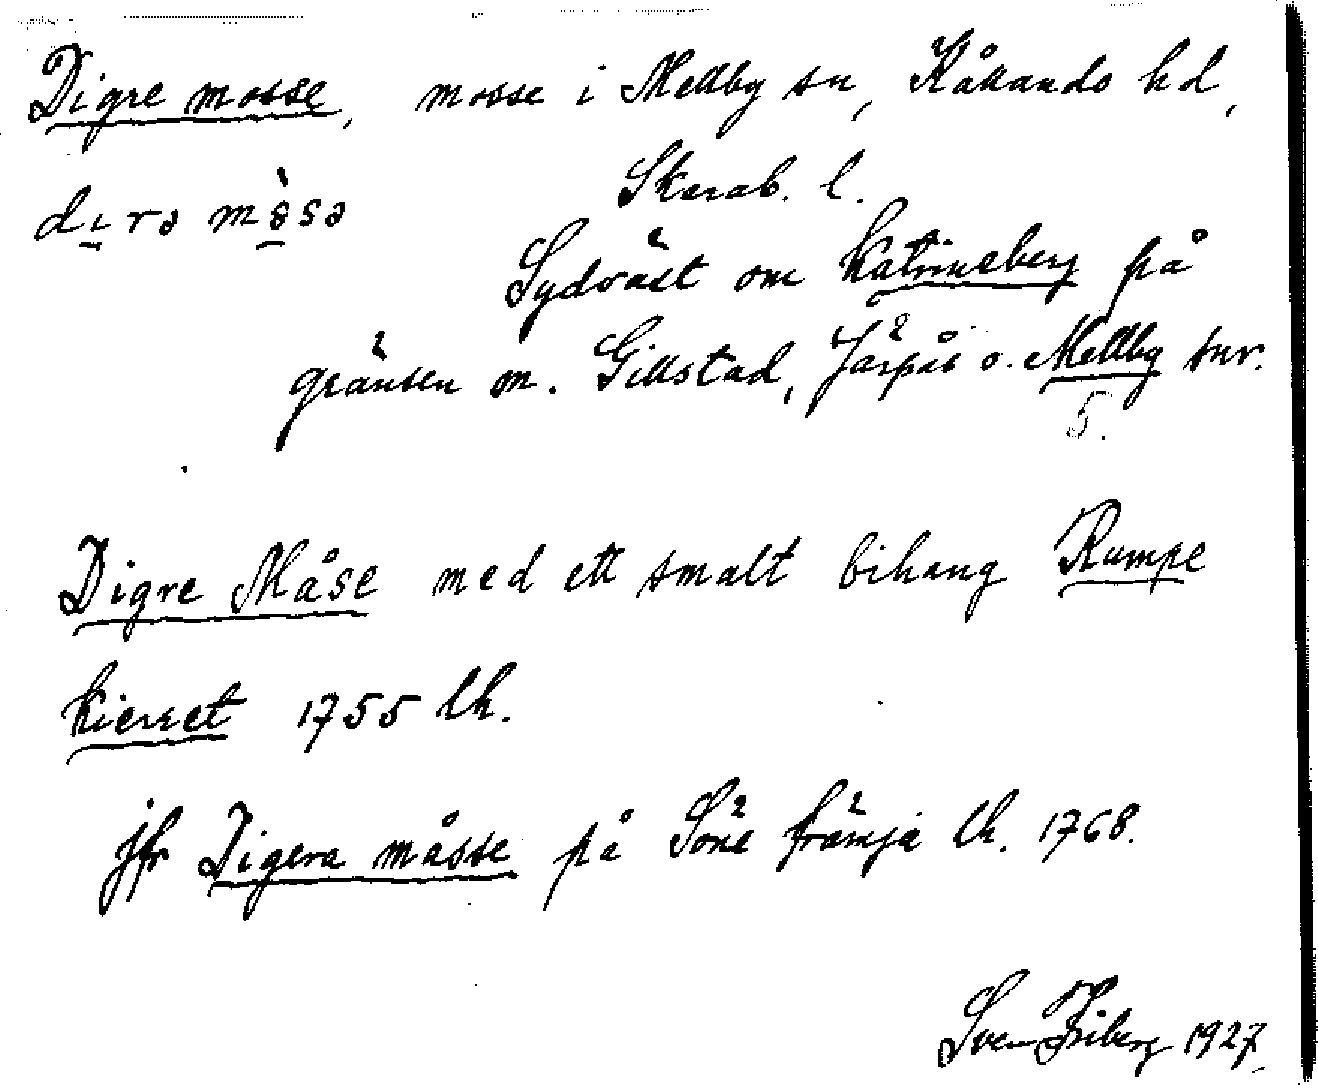 Digre mosse, mosse i Mellby sn, Kållands hd,
Skarab. l.
Sydväst om Katrineberg på
gränsen m. Gillstad, Järpås o. Mellby snr.
5.
Digre Måse med ett smalt bihang Rumpe
kierret 1755 lk.
jfr Digera måsse på Söne främja lk. 1768.
Sven Friberg 1927.